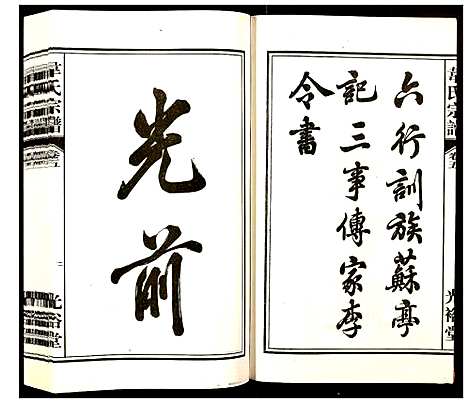 韋氏宗譜
卷五
光裕堂
六行訓族蘇亭
記三事傳家李
令書
光前
韋氏宗譜
卷五
光裕堂